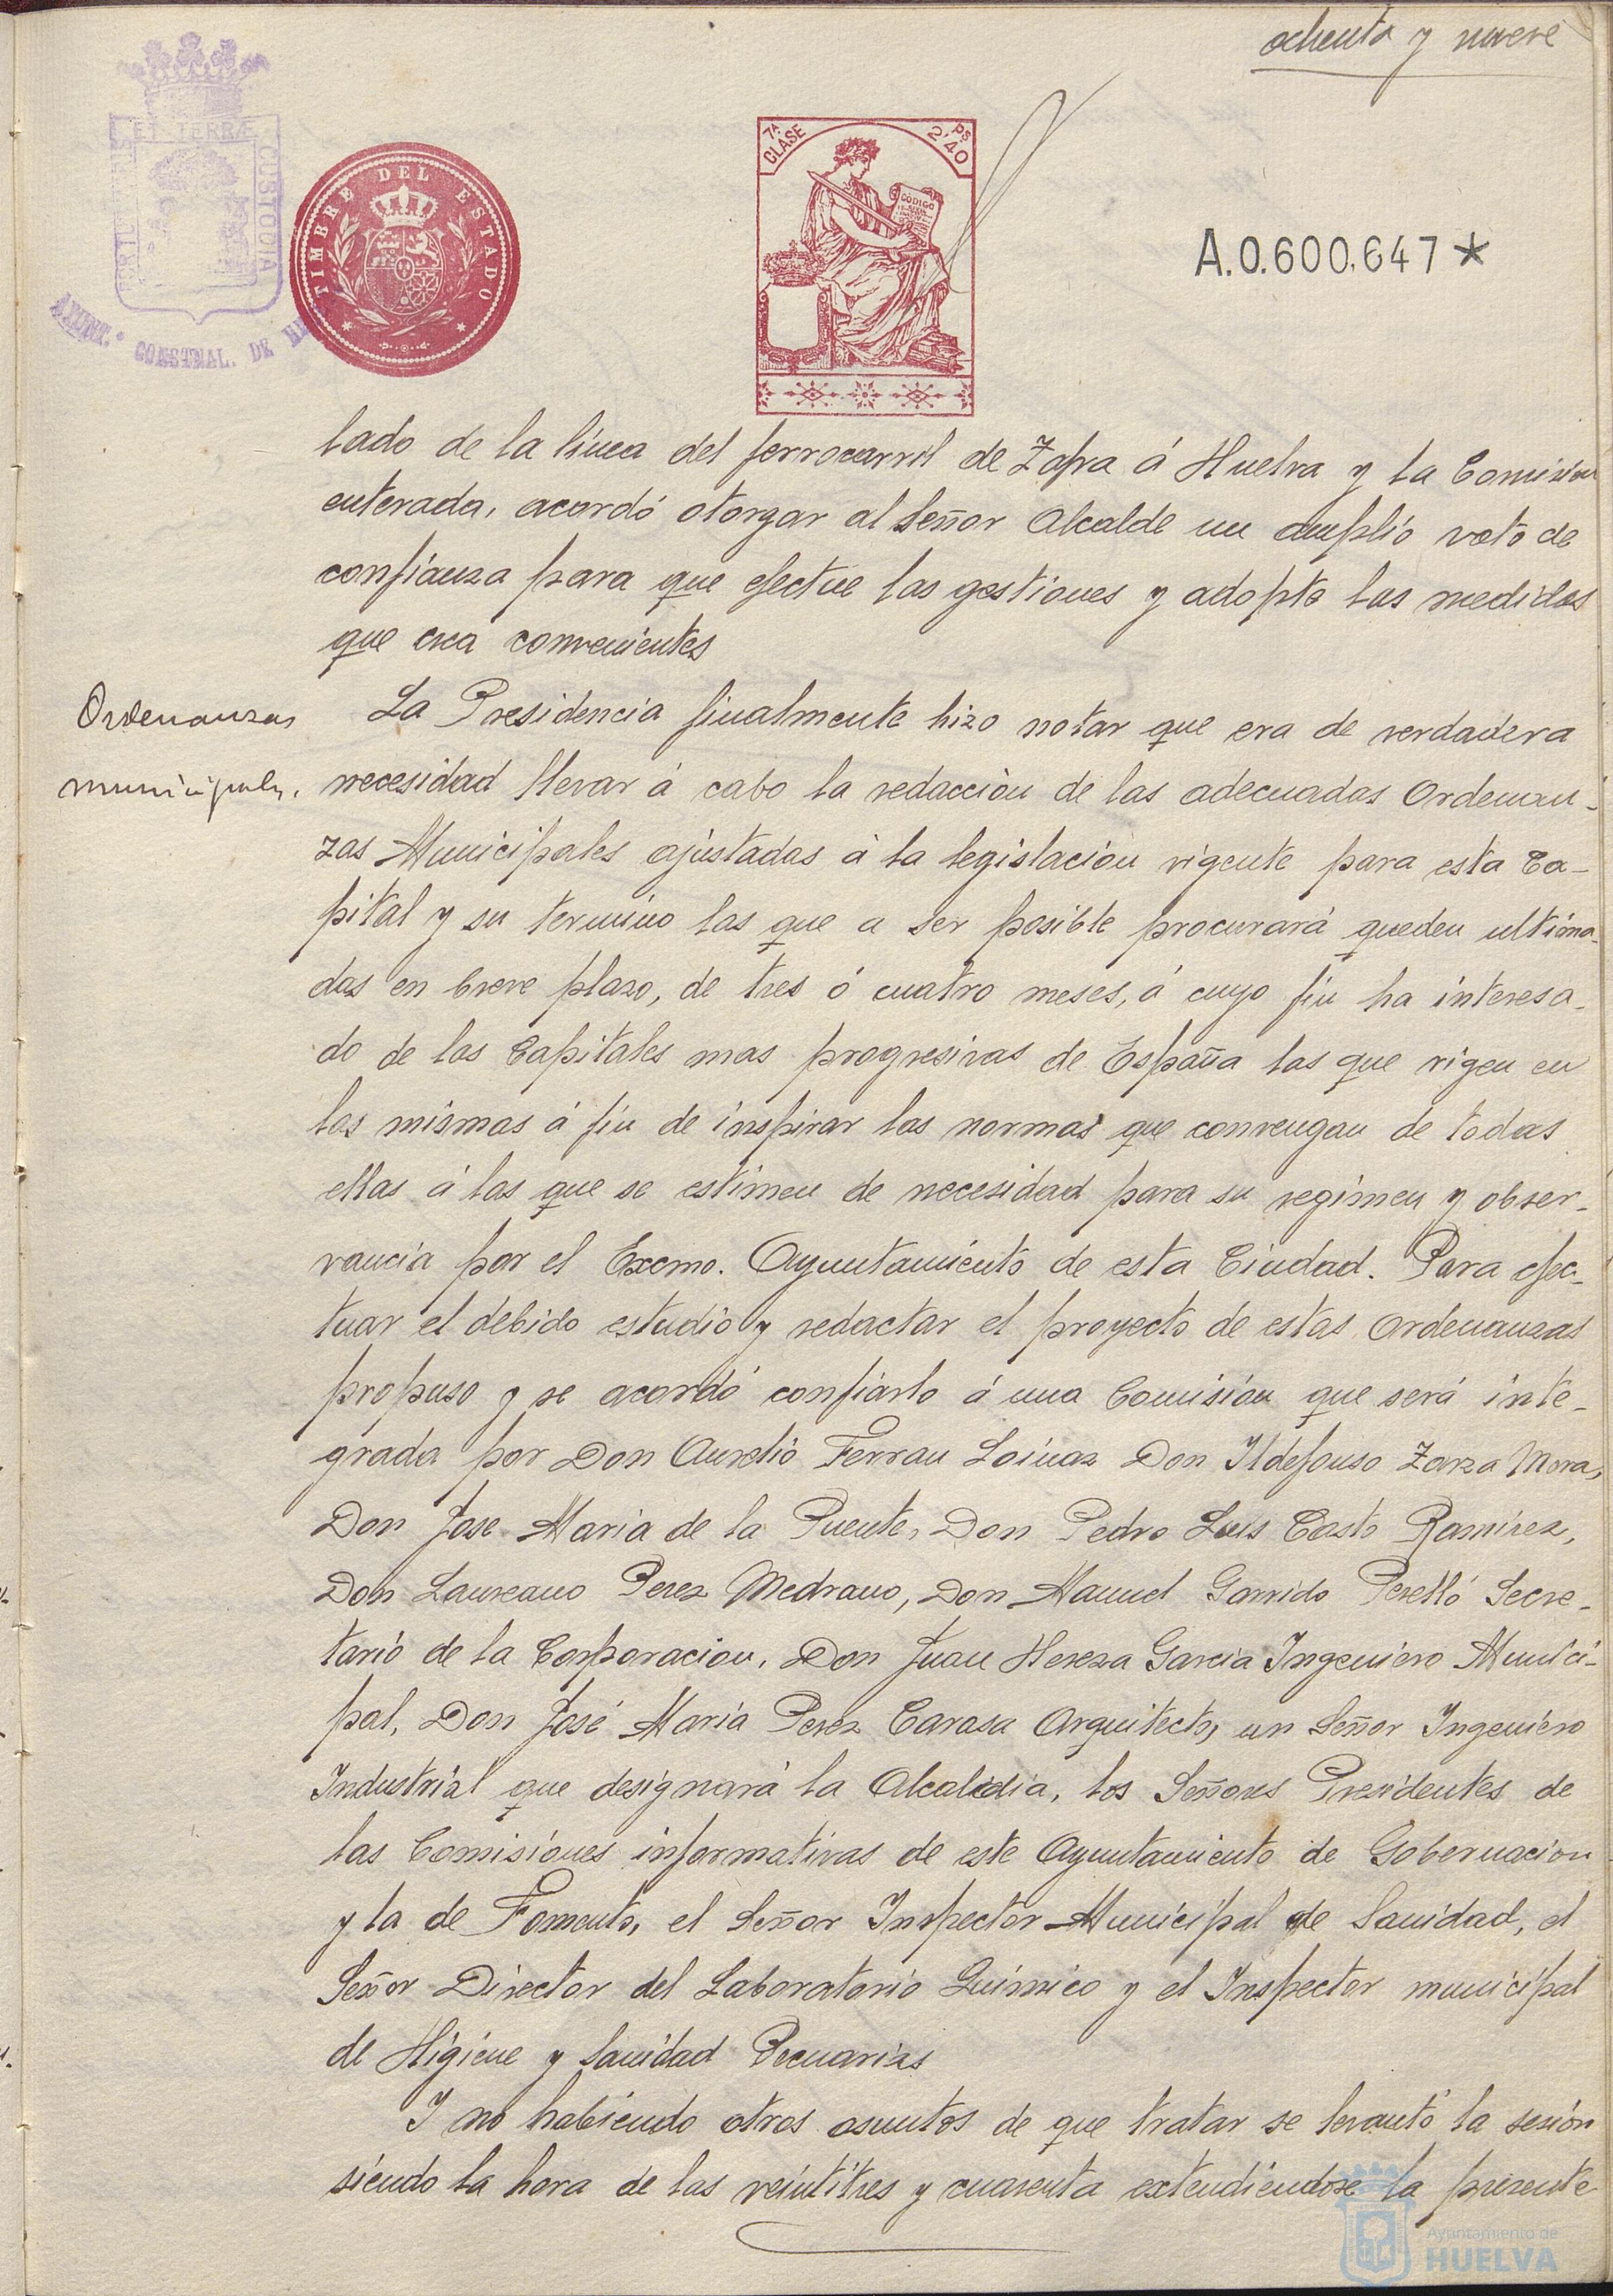 ochenta y nueve
ET TERRÆ
CUSTODIA
AYUNT.º CONSTNAL. DE
TIMBRE DEL ESTADO
7ª CLASE
2'40 Ps
CODIGO
A.0.600.647*
lado de la línea del ferrocarril de Zafra á Huelva y la Comisión
enterada, acordó otorgar al Señor Alcalde un amplio voto de
confianza para que efectue las gestiones y adopte las medidas
que crea convenientes
Ordenanzas
municipales.
La Presidencia finalmente hizo notar que era de verdadera
necesidad llevar á cabo la redacción de las adecuadas Ordenan-
zas Municipales ajustadas á la legislación vigente para esta Ca-
pital y su termino las que a ser posible procurará queden ultima-
das en breve plazo, de tres ó cuatro meses, á cuyo fin ha interesa-
do de las Capitales mas progresivas de España las que rigen en
las mismas á fin de inspirar las normas que convengan de todas
ellas á las que se estimen de necesidad para su regimen y obser-
vancia por el Excmo. Ayuntamiento de esta Ciudad. Para efec-
tuar el debido estudio y redactar el proyecto de estas Ordenanzas
propuso y se acordó confiarlo á una Comisión que será inte-
grada por Don Aurelio Ferran Loinaz Don Ildefonso Zarza Mora,
Don Jose Maria de la Puente, Don Pedro Luis Casto Ramirez,
Don Laureano Perez Medrano, Don Manuel Garrido Perelló Secre-
tario de la Corporacion, Don Juan Hereza Garcia Ingeniero Munici-
pal, Don José Maria Perez Carasa Arquitecto, un Señor Ingeniero
Industrial que designará la Alcaldia, los Señores Presidentes de
las Comisiones informativas de este Ayuntamiento de Gobernacion
y la de Fomento, el Señor Inspector Municipal de Sanidad, el
Señor Director del Laboratorio Quimico y el Inspector municipal
de Higiene y Sanidad Pecuarias
Y no habiendo otros asuntos de que tratar se levantó la sesión
siendo la hora de las veintitres y cuarenta extendiendose la presente
Ayuntamiento de
HUELVA